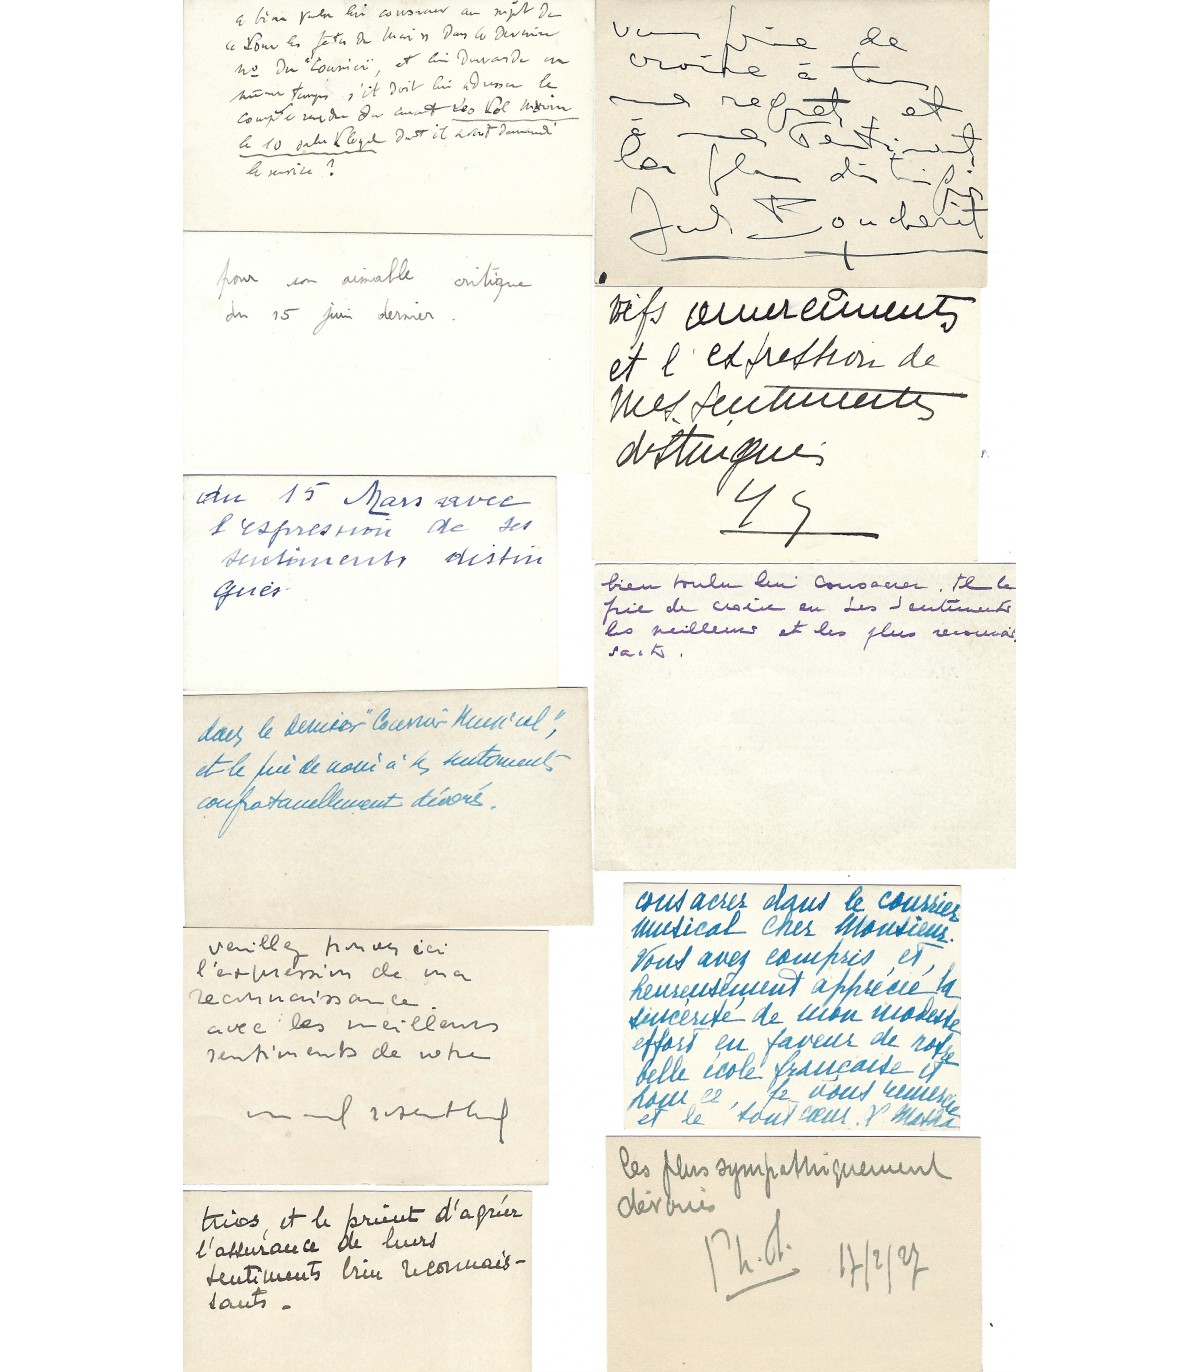 a bien voulu lui consacrer au sujet de
ce pour les fêtes de Mai dans le dernier
no du "Courrier", et lui demande en
même temps s'il doit lui adresser le
compte rendu du
le 10 salle Pleyel dont il avait demandé
le service ?
pour son aimable critique
du 15 juin dernier.
du 15 Mars avec
l'expression de ses
sentiments distin
gués.
dans le dernier "Courrier Musical",
et le prie de croire à ses sentiments
confraternellement dévoués.
veuillez trouver ici
l'expression de ma
reconnaissance.
avec les meilleurs
sentiments de votre
Manuel Rosenthal
trios, et le prient d'agréer
l'assurance de leurs
sentiments bien reconnais-
sants.
vous prie de
croire à tous
mes regrets, et
à mes sentiments
les plus distingués
Jules Boucherit
vifs remerciements
et l'expression de
mes sentiments
distingués
bien voulu lui consacrer. Il le
prie de croire en ses sentiments
les meilleurs et les plus reconnais
sants.
consacrer dans le courrier
musical cher Monsieur.
Vous avez compris et,
heureusement apprécié la
sincérité de mon modeste
effort en faveur de notre
belle école française et
pour ce, je vous remercie
et le tout cœur.
les plus sympathiquement
dévoués
17/2/27